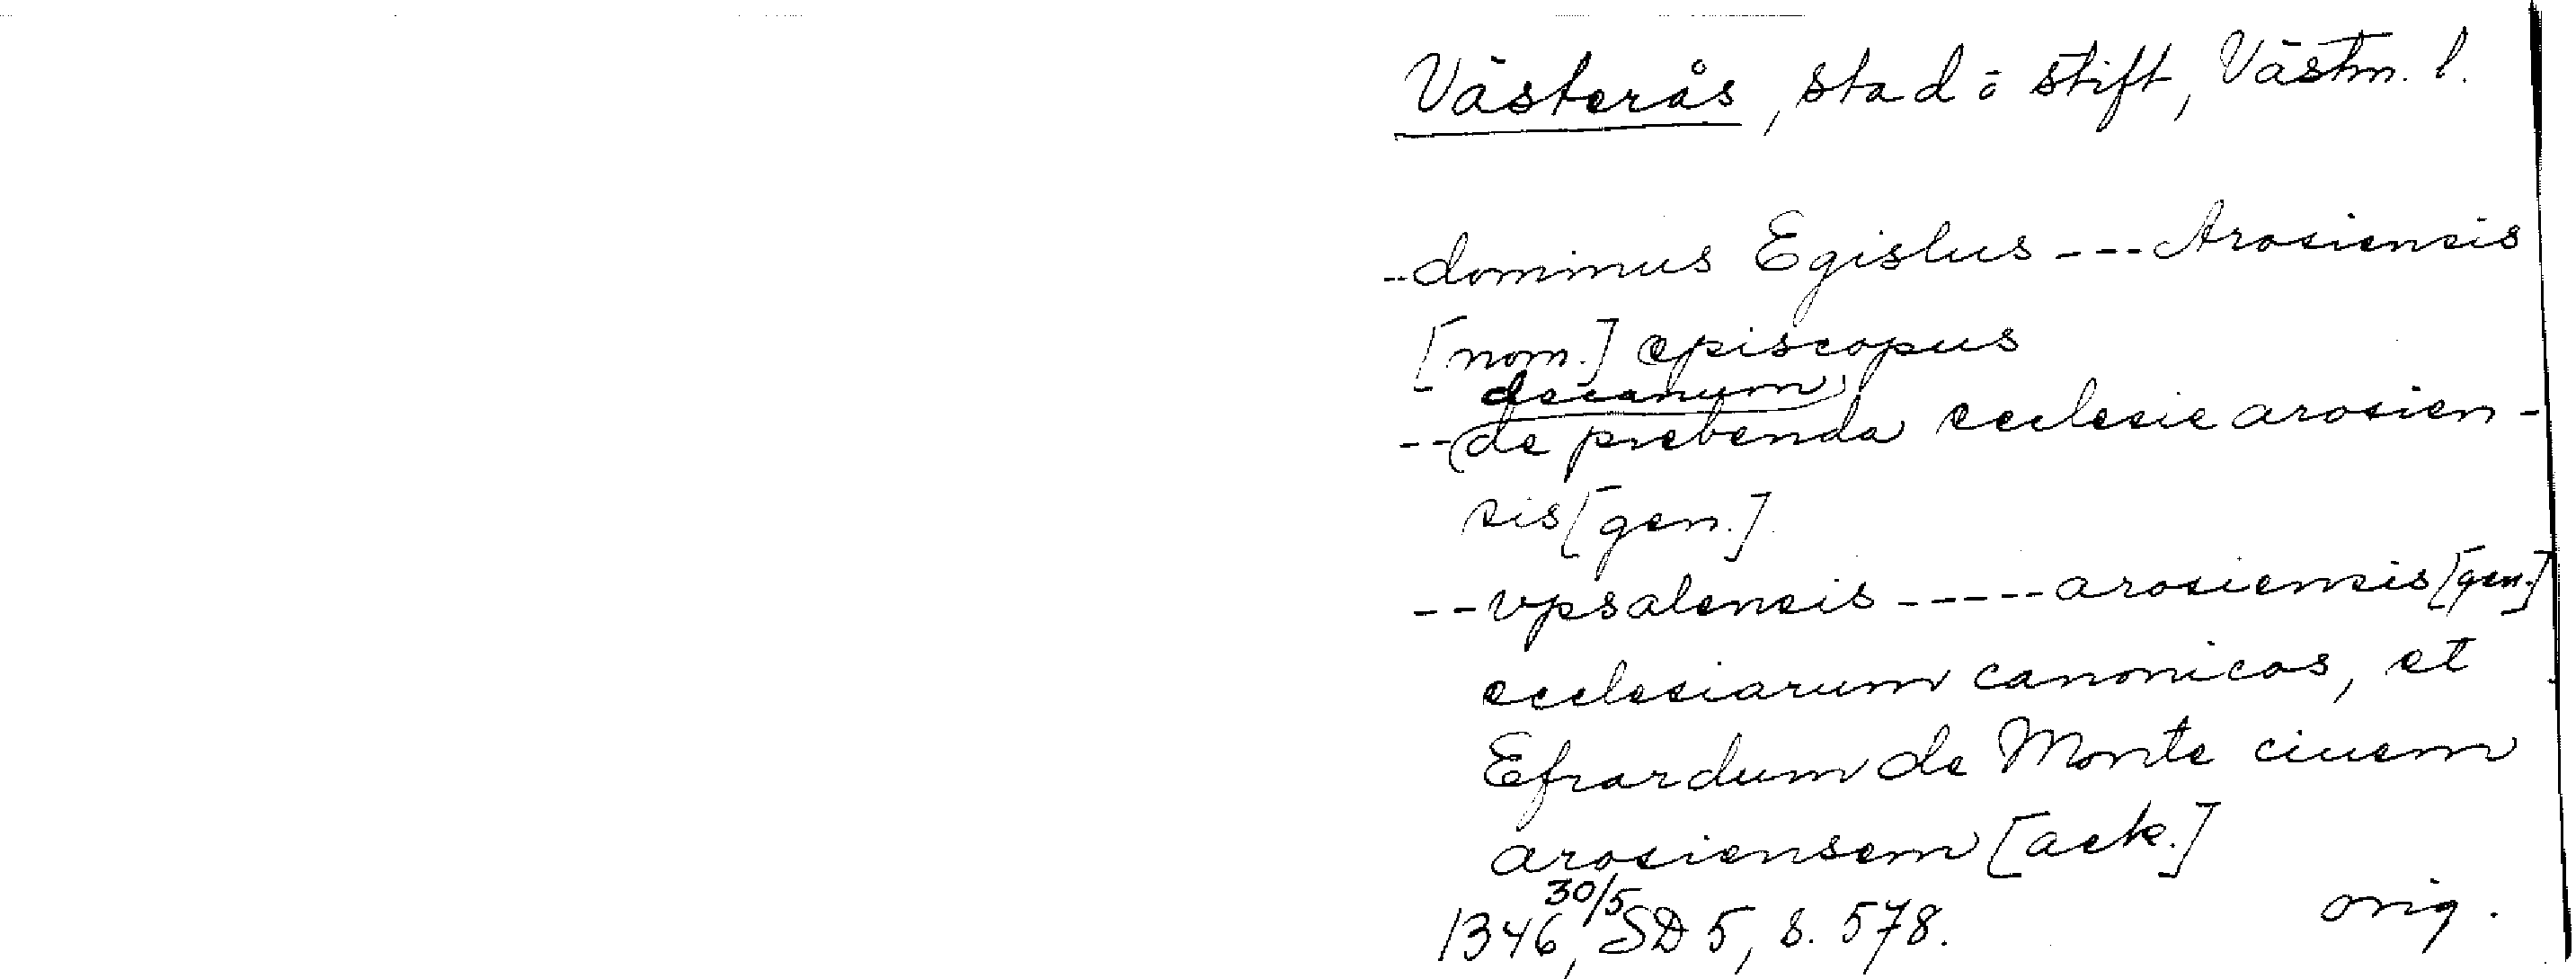 Västerås, stad o stift, Västm. l.
--dominus Egislus --- Arosiensis
[nom.] episcopus
decanum
--de prebenda ecclesie arosien-
sis [gen.]
--vpsalensis ----- arosiensis [gen.]
ecclesiarum canonicos, et
Efrardum de Monte ciuem
arosiensem [ack.]
30/5
1346, SD 5, s. 578. orig.